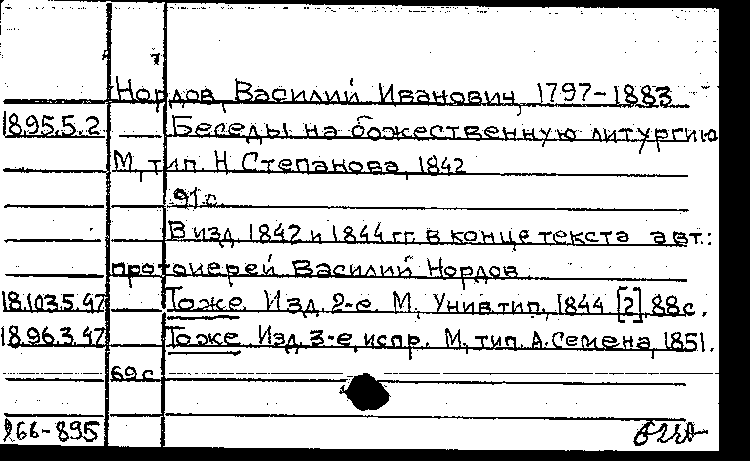 Нордов, Василий Иванович, 1797-1883
18.95.5.2 Беседы на божественную литургию
М, тип. Н. Степанова, 1842
91 с.
В изд. 1842 и 1844 гг. в конце текста авт.:
протоиерей Василий Нордов
18.103.5.47 Тоже. Изд. 2-е. М, Унив. тип., 1844 [2], 88 с.
18.96.3.47 Тоже. Изд. 3-е, испр. М, тип. А. Семена, 1851.
69 с
266-895